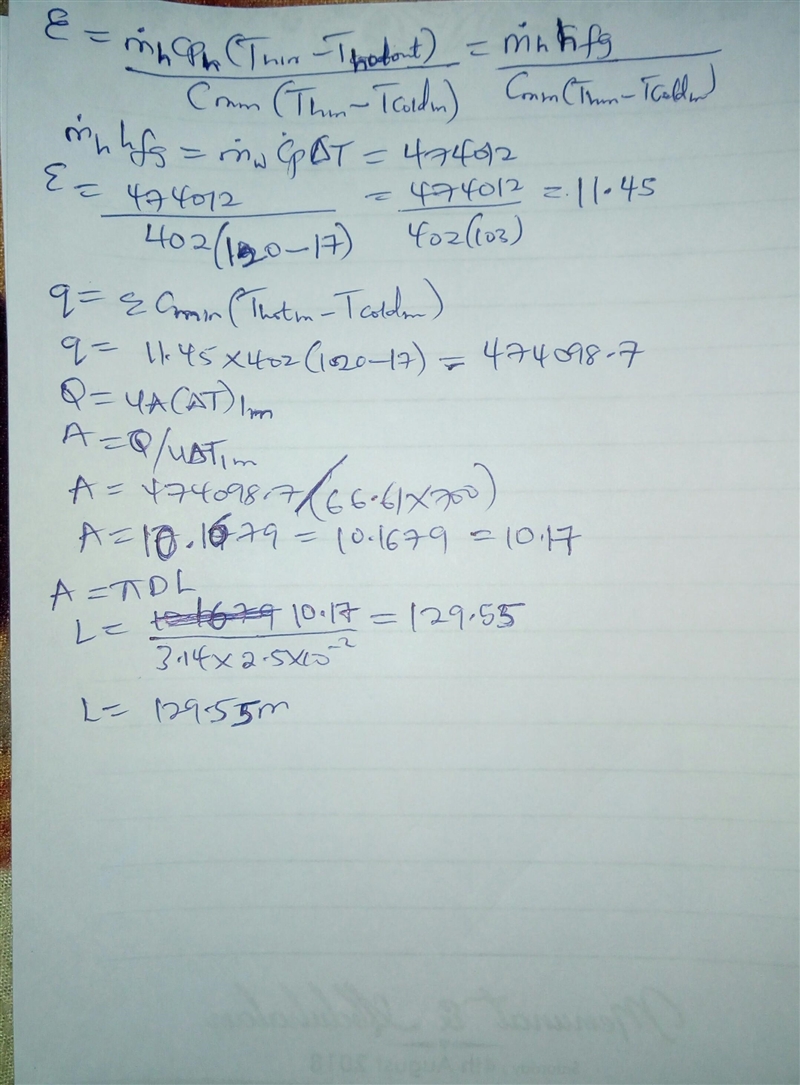 ε = ṁh Cph (Thin − Thotout) / Cmin (Thin − Tcoldin) = ṁh hfg / Cmin (Thin − Tcoldin)
ṁh hfg = ṁw Cp ΔT = 474012
ε = 474012 / 402(120−17) = 474012 / 402(103) = 11.45
q = ε Cmin (Thotin − Tcoldin)
q = 11.45 × 402 (120−17) = 474098.7
Q = UA(ΔT)lm
A = Q/UΔTlm
A = 474098.7/(66.61×700)
A = 10.1679 = 10.1679 = 10.17
A = πDL
L = 10.17 / 3.14 × 2.5×10⁻² = 129.55
L = 129.55m